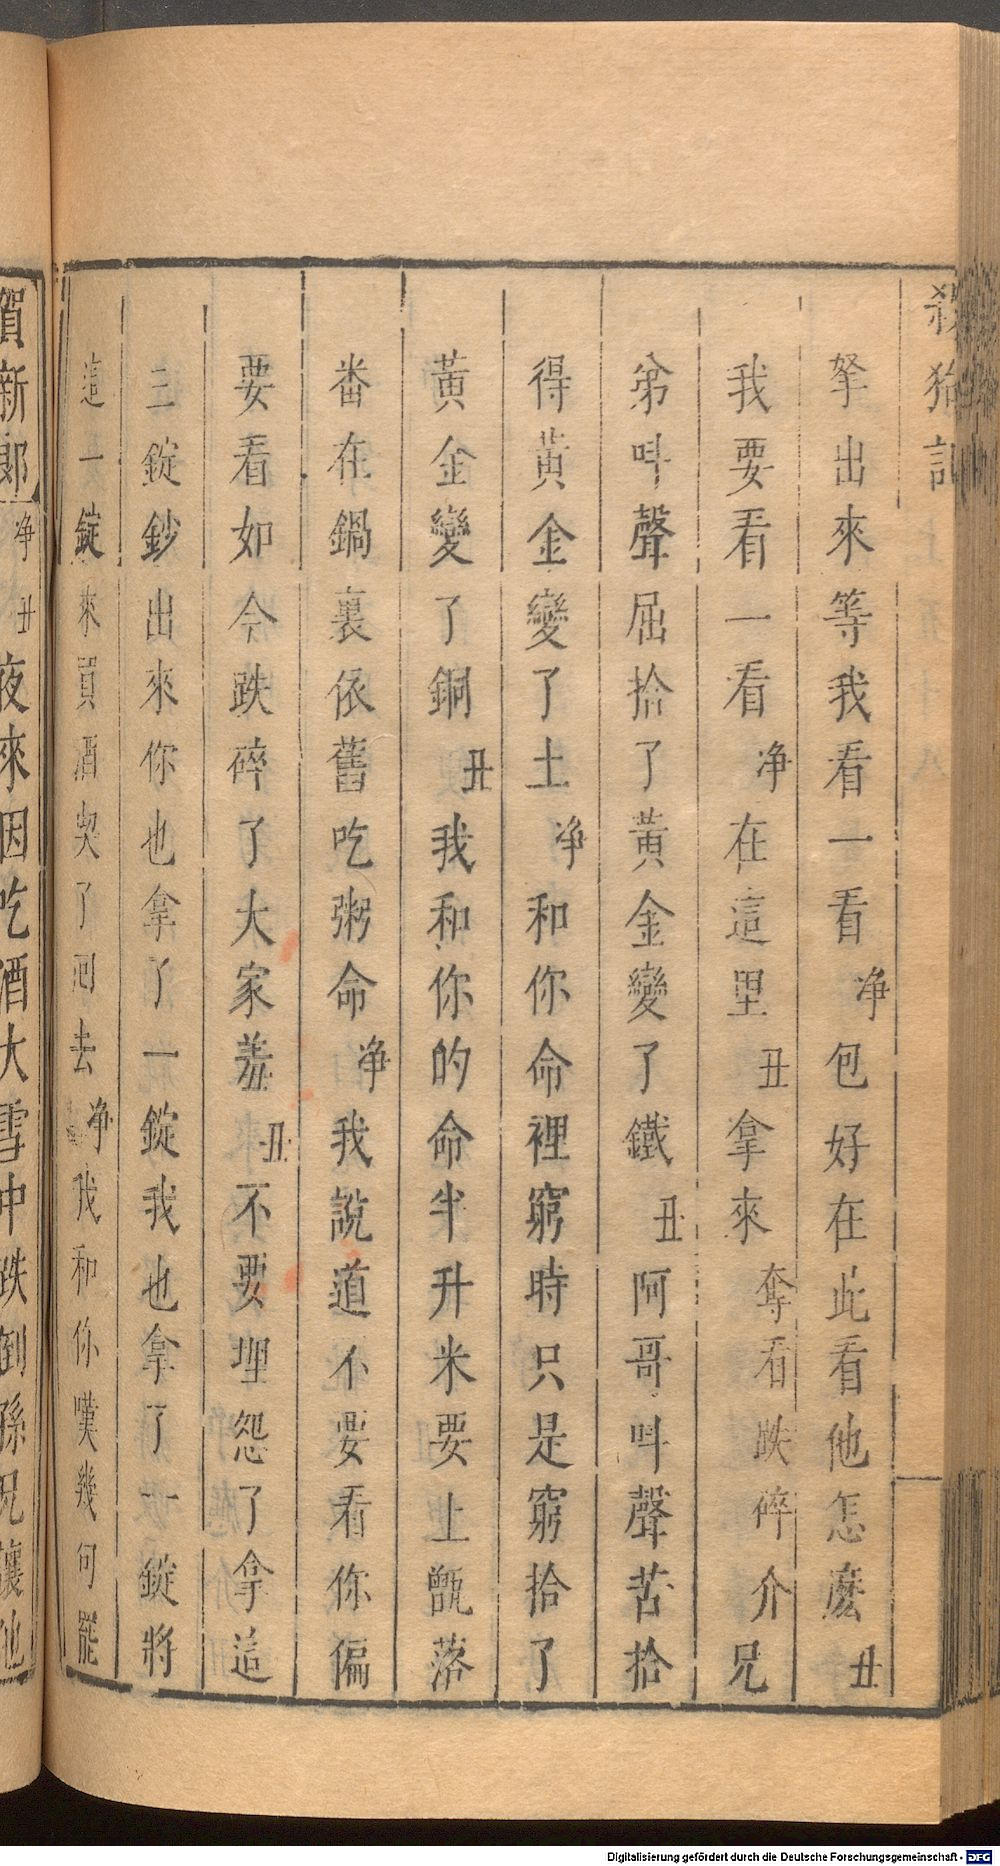 殺狗記
拏出來等我看一看净包好在此看他怎麽丑
我要看一看净在這里丑拿來奪看跌碎介兄
弟叫聲屈拾了黃金變了鐵丑阿哥叫聲苦拾
得黃金變了土净和你命裡窮時只是窮拾了
黃金變了銅丑我和你的命半升米要上甑落
番在鍋裏依舊吃粥命净我說道不要看你偏
要看如今跌碎了大家羞丑不要埋怨了拿這
三錠鈔出來你也拿了一錠我也拿了一錠將
這一錠來買酒喫了回去净我和你嘆幾句罷
賀新郎净丑夜來因吃酒大雪中跌倒孫兄讓他
Digitalisierung gefördert durch die Deutsche Forschungsgemeinschaft - DFG